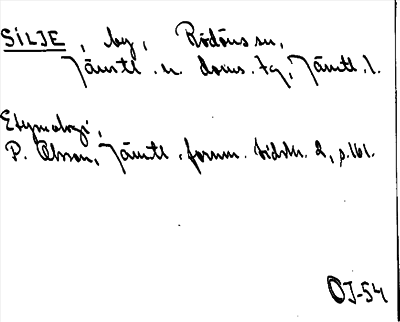 SILJE, by, Rödöns sn,
Jämtl. n. doms. tg, Jämtl. l.
Etymologi,
P. Olsson, Jämtl. fornm. tidskr. 2, s. 161.
OJ-54